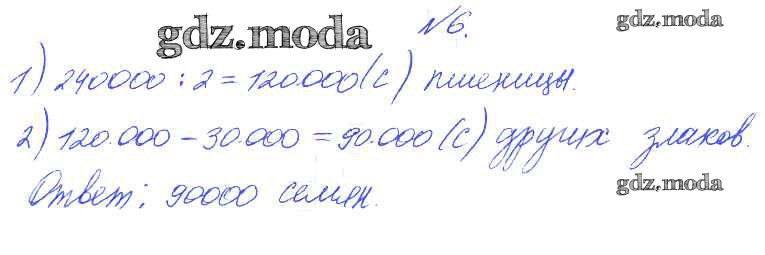 gdz.moda
№6.
gdz.moda
1) 240000 : 2 = 120.000 (с) пшеницы.
2) 120.000 – 30.000 = 90.000 (с) других злаков.
Ответ: 90000 семян.
gdz.moda